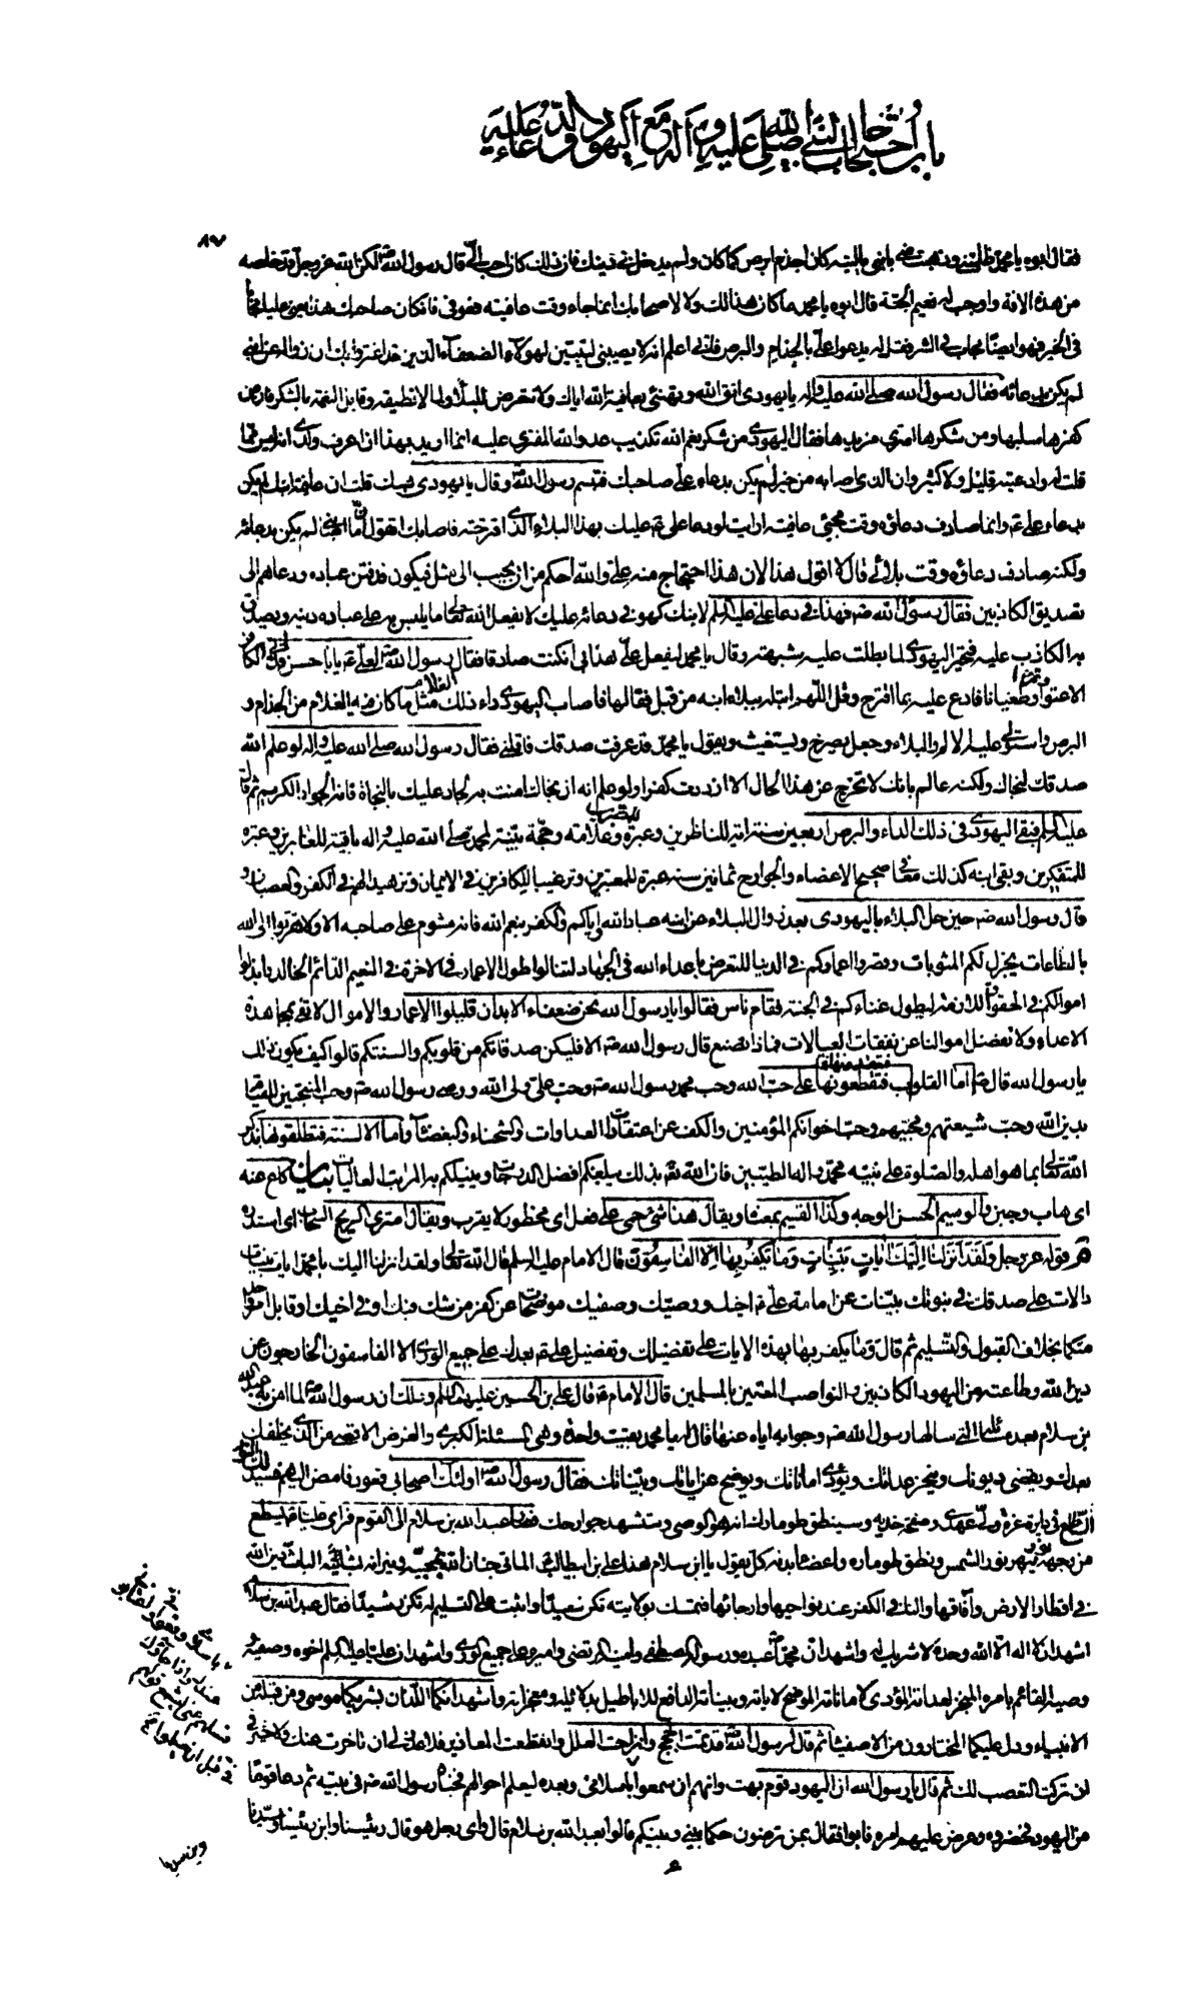 باب احتجاجات النبي صلى الله عليه وآله مع اليهود والدعاء عليه
٨٧
فقال ابوه يا محمد ظلمتني وذهبت مني بابني يا ليته كان اجذم ابرص كما كان ولم يدخل في دينك فان ذلك كان احب الي قال رسول الله ص لكن الله عز وجل قد خلصه
من هذه الافة واوجب له نعيم الجنة قال ابوه يا محمد ما كان هذا لك ولا لاصحابك انما جاء وقت عافيته فعوفي فان كان صاحبك هذا يعني عليا مجابا
في الخير فهو ايضا مجاب في الشر فقل له يدعو علي بالجذام والبرص فاني اعلم انه لا يصيبني ليتبين لهؤلاء الضعفاء الذين قد اغتروا بك ان زواله عن ابني
لم يكن بدعائه فقال رسول الله صلى الله عليه واله يا يهودي اتق الله وتهنئ بعافية الله اياك ولا تتعرض للبلاء ولما لا تطيقه وقابل النعمة بالشكر فان من
كفرها سلبها ومن شكرها امترى مزيدها فقال اليهودي من شكر نعم الله تكذيب عدو الله المفتري عليه انما اريد بهذا ان اعرف ولدي انه ليس مما
قلت له وادعيته قليل ولا كثير وان الذي اصابه من خير لم يكن بدعاء علي صاحبك فتبسم رسول الله ص وقال يا يهودي هبك قلت ان عافية ابنك لم يكن
بدعاء علي ع وانما صادف دعاؤه وقت مجيئ عافيته ارايت لو دعا علي ع عليك بهذا البلاء الذي اقترحته فاصابك اتقول ان ما اصابني لم يكن بدعائه
ولكنه صادف دعاؤه وقت بلائي قال لا اقول هذا لان هذا احتجاج مني على والله احكم من ان يجيب الى مثل فيكون قد فتن عباده ودعاهم الى
تصديق الكاذبين فقال رسول الله ص فهذا في دعاء علي عليه السلم لابنك كهو في دعائه عليك لا يفعل الله تعالى ما يلبس به على عباده دينه ويصدق
به الكاذب عليه فتحير اليهودي لما بطلت عليه شبهته وقال يا محمد ليفعل علي هذا بي ان كنت صادقا فقال رسول الله ص لعلي ع يا با حسن قد ابى الكافر
الا عتوا وطغيانا فادع عليه بما اقترح وقل اللهم ابتله ببلاء ابنه من قبل فقالها فاصاب اليهودي داء ذلك الغلام مثل ما كان فيه الغلام من الجذام و
البرص واستولى عليه الالم والبلاء وجعل يصرخ ويستغيث ويقول يا محمد قد عرفت صدقك فاقلني فقال رسول الله صلى الله عليه واله لو علم الله
صدقك لنجاك ولكنه عالم بانك لا تخرج عن هذا الحال الا ازددت كفرا ولو علم انه ان نجاك امنت به لجاد عليك بالنجاة فانه الجواد الكريم ثم قال
عليه السلم فبقي اليهودي في ذلك الداء والبرص اربعين سنة اية للناظرين وعبرة للمتفكرين وعلامة وحجة بينة لمحمد صلى الله عليه واله باقية للغابرين وعبرة
للمتفكرين وبقي ابنه كذلك معافى صحيح الاعضاء والجوارح ثمانين سنة عبرة للمعتبرين وترغيبا للكافرين في الايمان وتزهيدا لهم في الكفر والعصيان و
قال رسول الله ص حين حل البلاء باليهودي بعد زوال البلاء عن ابنه عباد الله اياكم والكفر بنعم الله فانه مشوم على صاحبه الا وتقربوا الى الله
بالطاعات يجزل لكم المثوبات وقصروا اعماركم في الدنيا للتعرض باعداء الله في الجهاد لتنالوا طول الاعمار في الاخرة في النعيم الدائم الخالد وابذلوا
اموالكم في الحقوق اللازمة ليطول غناءكم في الجنة فقام ناس فقالوا يا رسول الله نحن ضعفاء الابدان قليلوا الاعمار والاموال لا نفي بمجاهدة
الاعداء ولا تفضل اموالنا عن نفقات العيالات فماذا نصنع قال رسول الله ص الا فليكن صدقاتكم من قلوبكم والسنتكم قالوا كيف يكون ذلك
يا رسول الله قال ص اما القلوب فتقطعونها على حب الله وحب محمد رسول الله ص وحب علي ولي الله ووصي رسول الله ص وحب المنتجبين للقيام
بدين الله وحب شيعتهم ومحبيهم وحب اخوانكم المؤمنين والكف عن اعتقادات العداوات والشحناء والبغضاء واما الالسنة فتطلقونها بذكر
الله تعالى بما هو اهله والصلوة على نبيه محمد واله الطيبين فان الله تعالى بذلك يبلغكم افضل الدرجات وينيلكم به المراتب العاليات بيان كاع عنه
اي هاب وجبن والوسيم الحسن الوجه وكذا القسيم بمعناه ويقال هذا شئ حمى على فعل اي محظور لا يقرب ويقال امترى الريح السحاب اي استدره
م قوله عز وجل ولقد انزلنا اليك ايات بينات وما يكفر بها الا الفاسقون قال الامام عليه السلم قال الله تعالى ولقد انزلنا اليك يا محمد ايات بينات
دالات على صدقك في نبوتك مبينات عن امامة علي ع اخيك ووصيك وصفيك موضحات عن كفر من شك فيك او في اخيك او قابل امر واحد
منكما بخلاف القبول والتسليم ثم قال وما يكفر بها بهذه الايات على تفضيلك وتفضيل علي ع بعدك على جميع الورى الا الفاسقون الخارجون عن
دين الله وطاعته من اليهود الكاذبين والنواصب المتسمين بالمسلمين قال الامام ع قال علي بن الحسين عليهما السلم وذلك ان رسول الله ص لما امن به عبد الله
بن سلام بعد مسائله التي سالها رسول الله ص وجوابه اياه عنها قال له يا محمد بقيت واحدة وهي المسئلة الكبرى والغرض الاقصى من الذي يخلفك
بعدك ويقضي ديونك وينجز عداتك ويؤدي اماناتك ويوضح عن اياتك وبيناتك فقال رسول الله ص اولئك اصحابي قعود فامض اليهم فسيدلك النور
الساطع في دائرة غرة ولي عهدي وصفحة خديه وسينطق طومارك انه هو الوصي وستشهد جوارحك فصار عبد الله بن سلام الى القوم فراى عليا ع يسطع
من وجهه نور يبهر نور الشمس ونطق طوماره واعضاء بدنه كل يقول يا ابن سلام هذا علي بن ابيطالب المالئ جنان الله بمحبيه ونيرانه بشانئيه الباث دين الله
في اقطار الارض وآفاقها والنافي الكفر عن نواحيها وارجائها فتمسك بولايته تكن سعيدا واثبت على التسليم له تكن رشيدا فقال عبد الله بن سلام
اشهد ان لا اله الا الله وحده لا شريك له واشهد ان محمدا عبده ورسوله المصطفى وامينه المرتضى واميره على جميع الورى واشهد ان عليا عليه السلم اخوه وصفيه و
وصيه القائم بامره المنجز لعداته المؤدي لاماناته الموضح لاياته وبيناته الدافع للاباطيل بدلائله ومعجزاته واشهد انكما اللذان بشر بكما موسى ومن قبله من
الانبياء ودل عليكما المختارون من الاصفياء ثم قال لرسول الله ص قد تمت الحجج وانزاحت العلل وانقطعت المعاذير فلا عذر لي ان تاخرت عنك ولا خير في
ان تركت التعصب لك ثم قال يا رسول الله ان اليهود قوم بهت وانهم ان سمعوا باسلامي وقعوا فيّ فاخبأني عندك واذا جاؤك فسلهم عني لتسمع قولهم فيّ قبل ان يعلموا باسلامي وبعده ليعلم احوالهم فخباه رسول الله ص في بيته ثم دعا قوما
من اليهود فحضروه وعرض عليهم امره فابوا فقال بمن ترضون حكما بيني وبينكم قالوا بعبد الله بن سلام قال واي رجل هو قال رئيسنا وابن رئيسنا وسيدنا
وابن سيدنا